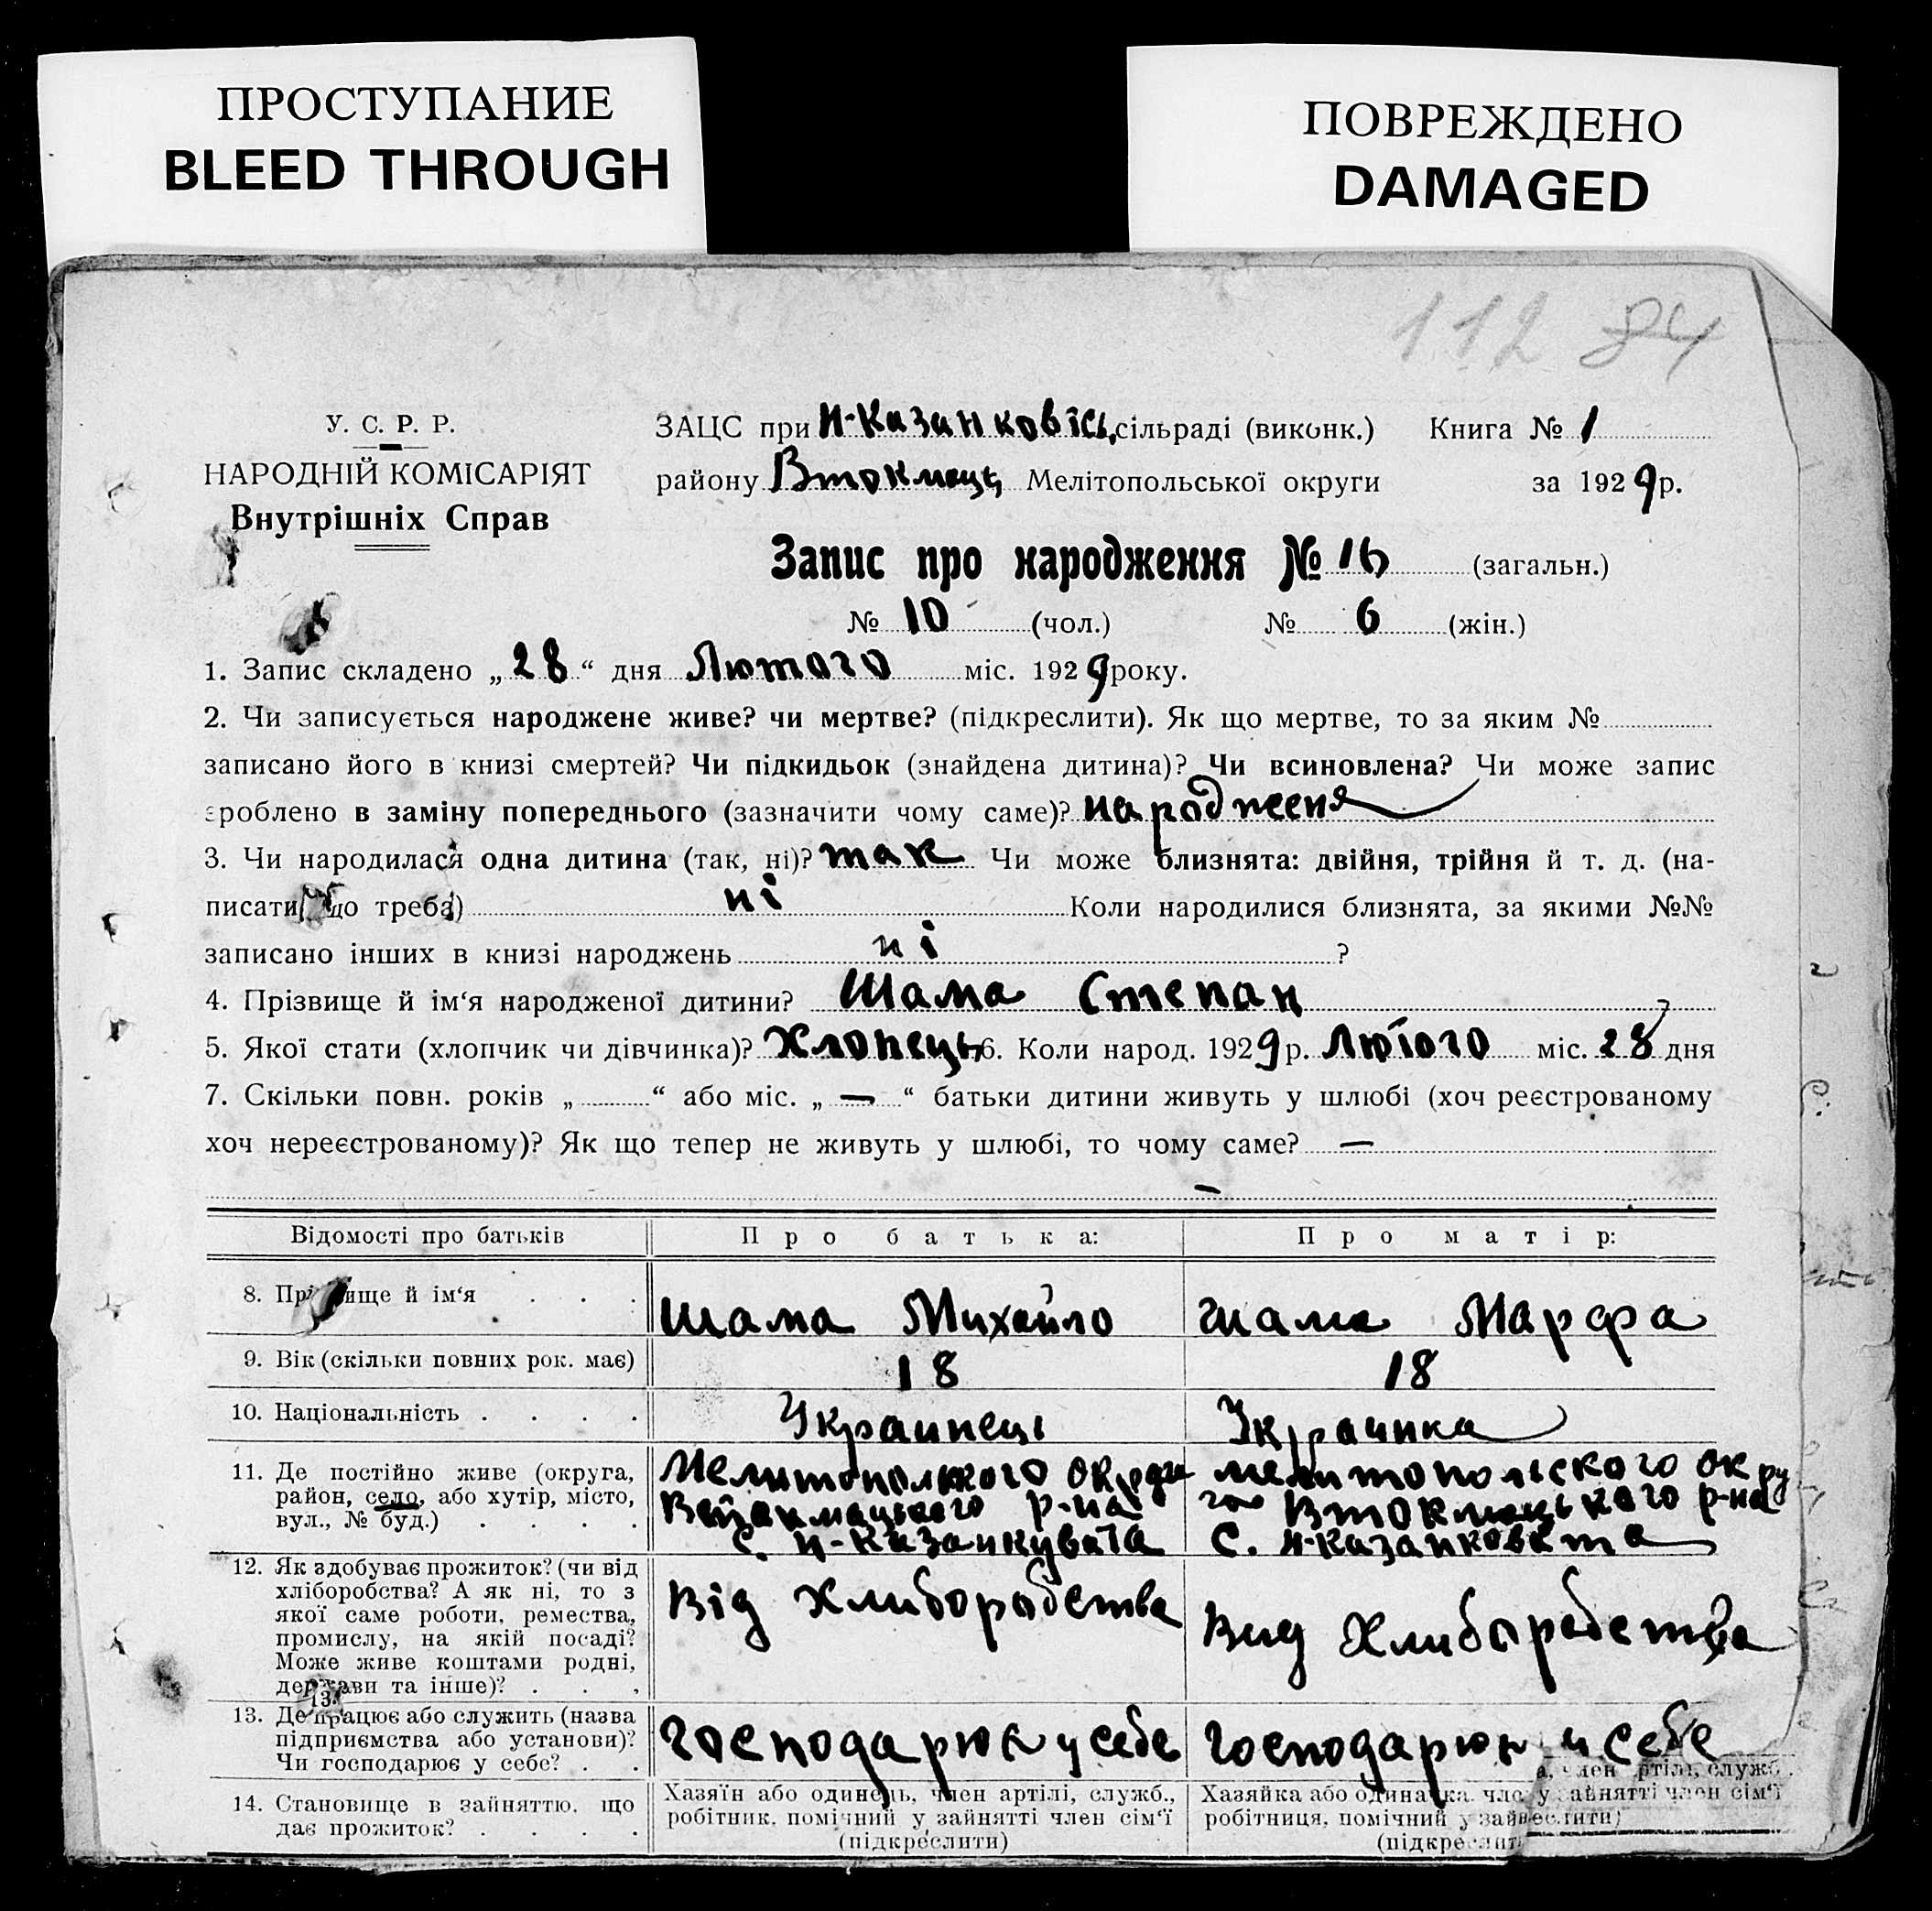 ПРОСТУПАНИЕ
BLEED THROUGH
ПОВРЕЖДЕНО
DAMAGED
112 84
У. С. Р. Р.
НАРОДНІЙ КОМІСАРІЯТ
Внутрішніх Справ
ЗАЦС при Н-Казанковісь, сільраді (виконк.) Книга № 1
району Втокмець Мелітопольської округи за 1929 р.
Запис про народження № 16 (загальн.)
№ 10 (чол.) № 6 (жін.)
1. Запис складено „28“ дня Лютого міс. 1929 року.
2. Чи записується народжене живе? чи мертве? (підкреслити). Як що мертве, то за яким №
записано його в книзі смертей? Чи підкидьок (знайдена дитина)? Чи всиновлена? Чи може запис
зроблено в заміну попереднього (зазначити чому саме)? народженя
3. Чи народилася одна дитина (так, ні)? так Чи може близнята: двійня, трійня й т. д. (на-
писати що треба) ні Коли народилися близнята, за якими №№
записано інших в книзі народжень ні ?
4. Прізвище й ім‘я народженої дитини? Шама Степан
5. Якої стати (хлопчик чи дівчинка)? Хлопець 6. Коли народ. 1929 р. Лютого міс. 28 дня
7. Скільки повн. років „ “ або міс. „ — “ батьки дитини живуть у шлюбі (хоч реєстрованому
хоч нереєстрованому)? Як що тепер не живуть у шлюбі, то чому саме? —
—
Відомості про батьків Про батька: Про матір:
8. Прізвище й ім‘я . . . Шама Михайло Шама Марфа
9. Вік (скільки повних рок. має) 18 18
10. Національність . . . . Украинець Украинка
11. Де постійно живе (округа,
район, село, або хутір, місто,
вул., № буд.) . . . .
Мелитопольского округи
Втокмацького р-на
с. Н-Казанкувата
мелитопольского окру
ги Втокмецького р-на
С. Н-казанковата
12. Як здобуває прожиток? (чи від
хліборобства? А як ні, то з
якої саме роботи, ремества,
промислу, на якій посаді?
Може живе коштами родні,
держави та інше)? . . .
Від Хлиборобства
Вид Хлиборобства
13. Де працює або служить (назва
підприємства або установи)?
Чи господарює у себе? . .
Господарюю у себе
Господарюю у себе
14. Становище в зайняттю, що
дає прожиток? . . . .
Хазяїн або одинець, член артілі, служб.,
робітник, помічний у зайнятті член сім‘ї
(підкреслити)
Хазяйка або одиначка, чле
робітниця, помічний у зай
(підкреслити
член артілі, служб.
у зайнятті член сім‘ї